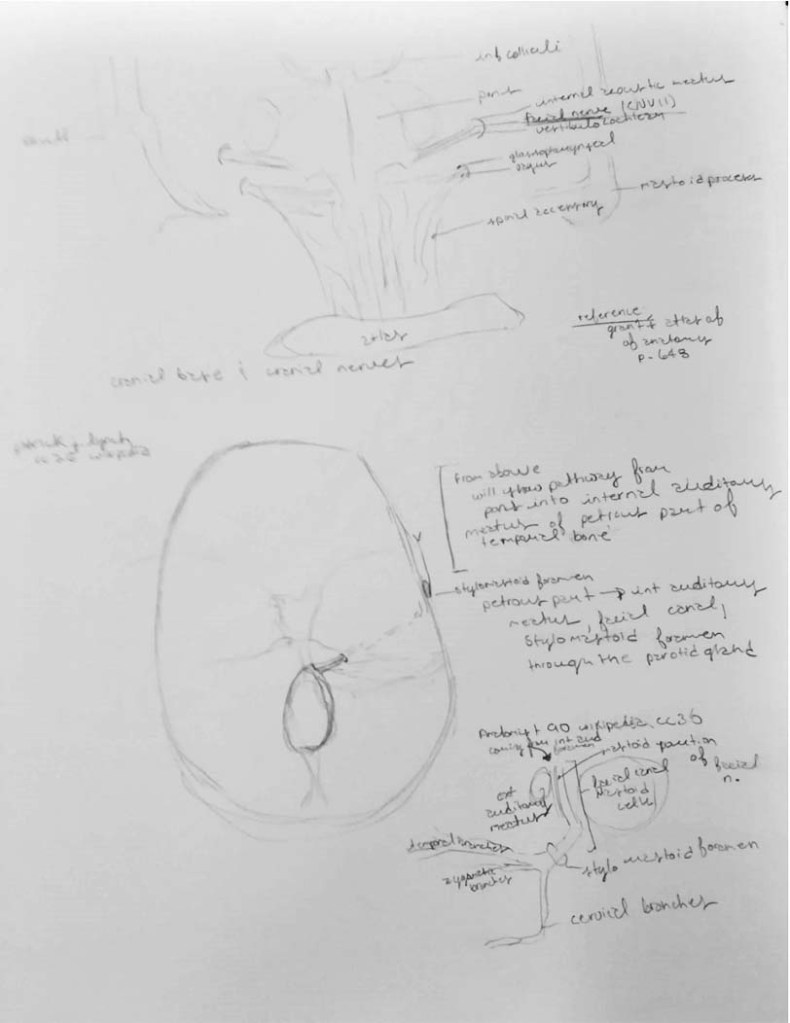 inf colliculi
pons
internal acoustic meatus
facial nerve (CNVII)
vestibulocochlear
glossopharyngeal
vagus
mastoid process
spinal accessory
reference
grant's atlas of
of anatomy
p. 648
atlas
cranial base & cranial nerves
patrick j. lynch
from above
will show pathway from
pons into internal auditory
meatus of petrous part of
temporal bone
stylomastoid foramen
petrous part → int auditory
meatus, facial canal,
stylomastoid foramen
through the parotid gland
wikipedia cc
coming from int aud
foramen
mastoid portion
of facial
n.
facial canal
mastoid
cells
ext
auditory
meatus
temporal branches
zygomatic
branches
stylomastoid foramen
cervical branches